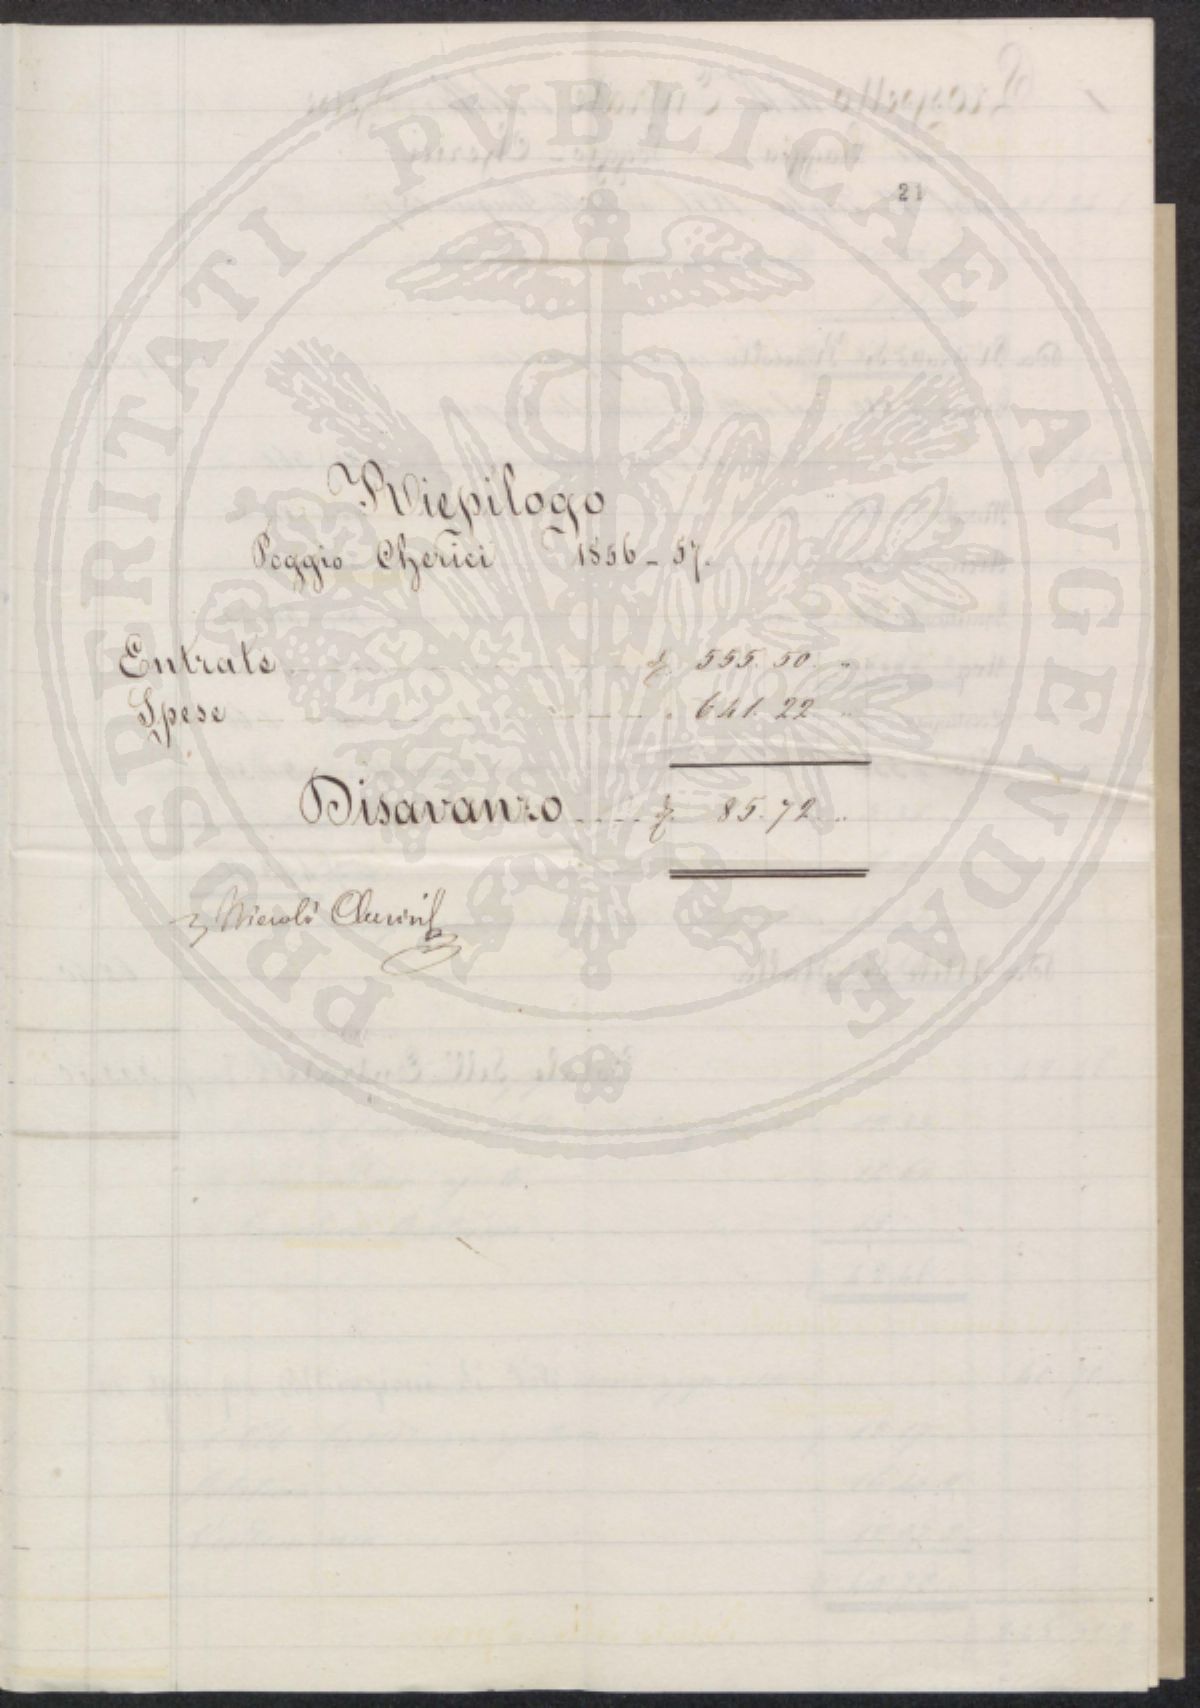 PROSPERITATI PVBLICAE AVGENDAE
21
Riepilogo
Poggio Cherici 1856-57.
Entrate £ 555. 50. "
Spese " 641. 22 "
Disavanzo £. 85. 72. "
Nicolò